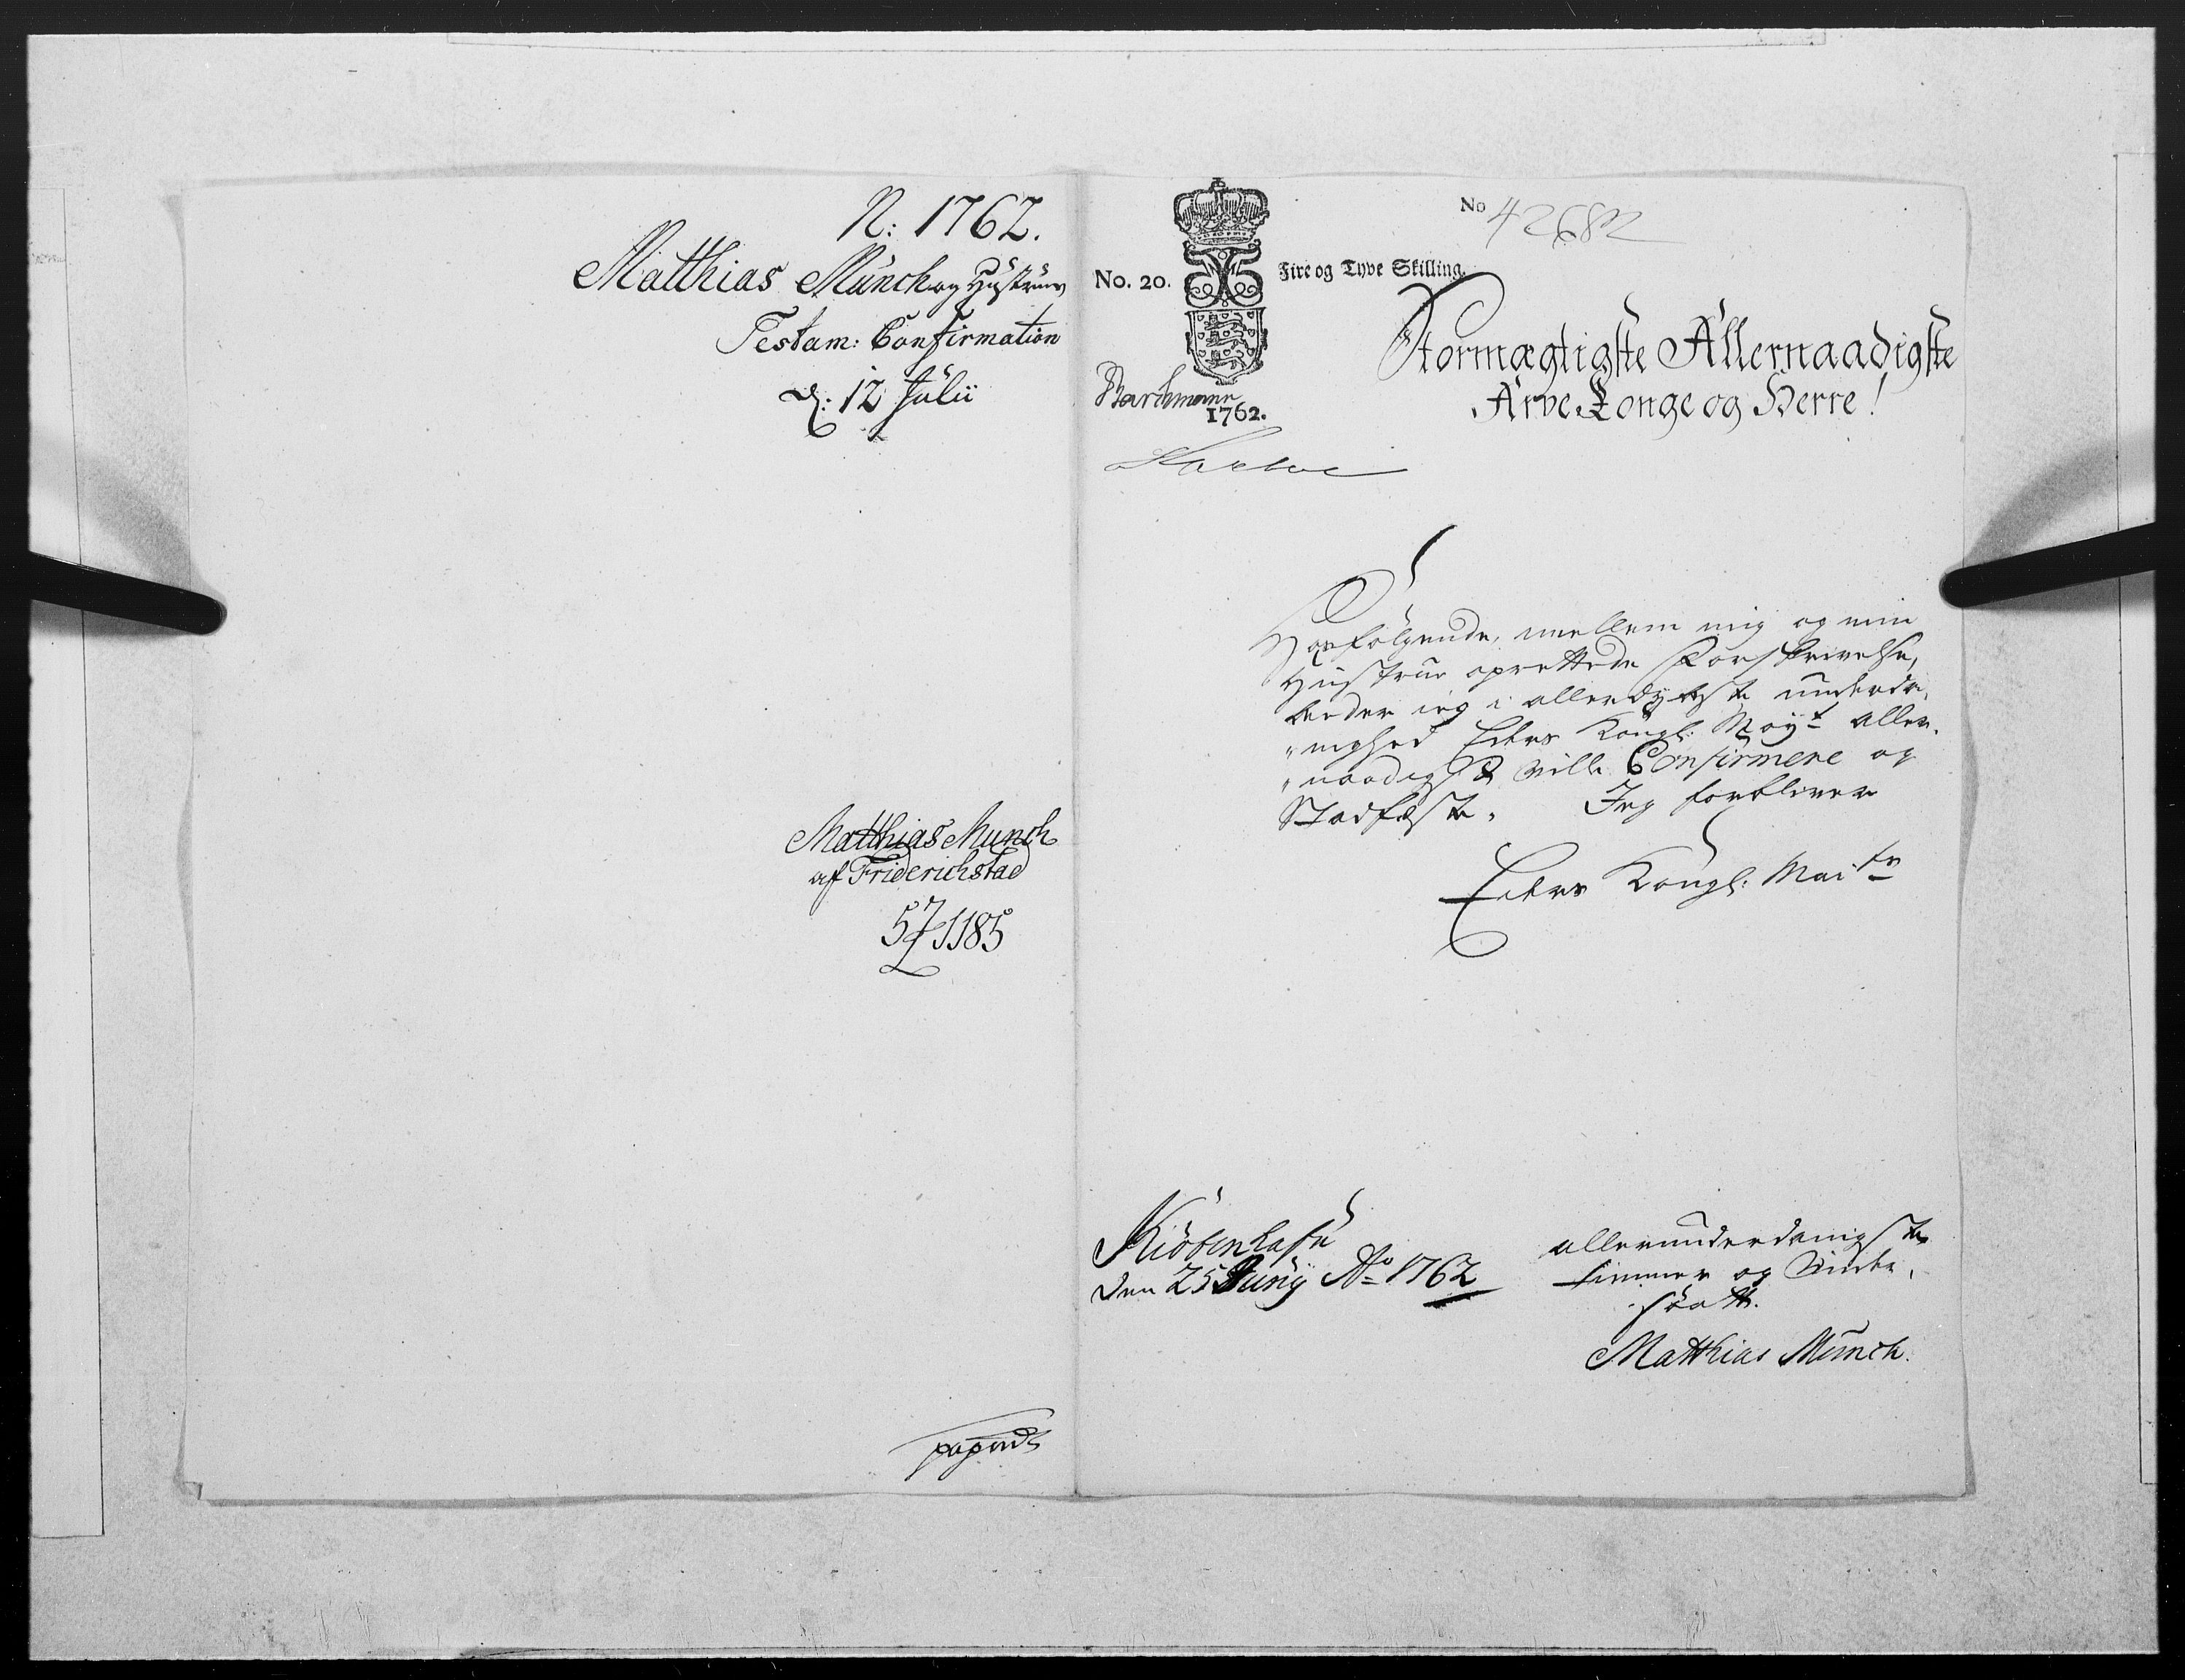 N: 1762.
Matthias Münch og Hüstrües
Testam: Confirmation
d: 12 Julii
Matthias Munch
af Friderichstad
57/1185
No 42682
No. 20. Fire og Tyve Skilling.
Barthmann
1762.
Stormægtigste Allernaadigste
Arve Konge og Herre!
Hosfølgende, mellem mig og min
Hustrue oprettede Forskrivelse,
beder jeg i allerdybeste underda„
„nighed Eders Kongl: Mayt aller„
„naadigst ville Confirmere og
Stadfæste. Jeg forbliver
Eders Kongl: Maits
Kiöbenhafn
den 25 Junÿ Ao 1762
allerunderdanigste
og
Matthias Münch.